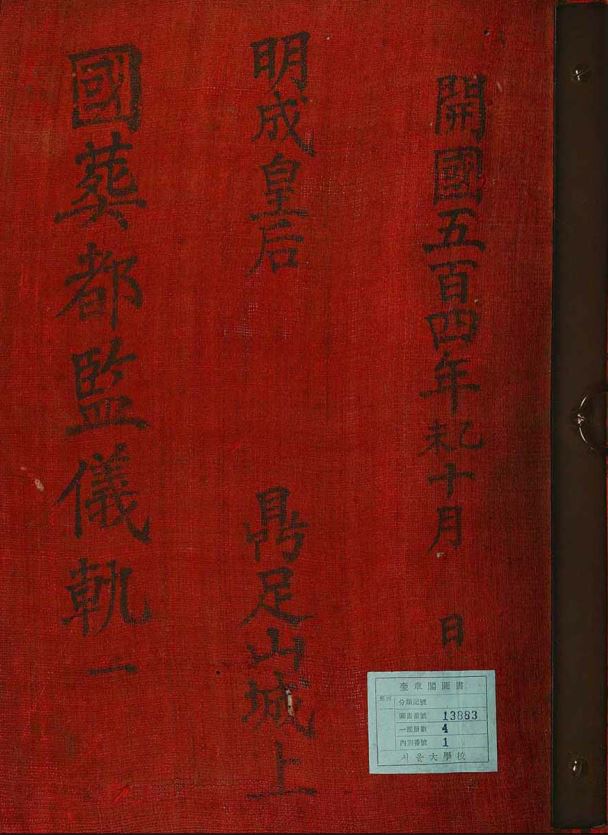 開國五百四年乙未十月 日
明成皇后 鼎足山城上
國葬都監儀軌 一
奎章閣圖書
分類記號
圖書番號 13883
一部冊數 4
內別番號 1
서울大學校